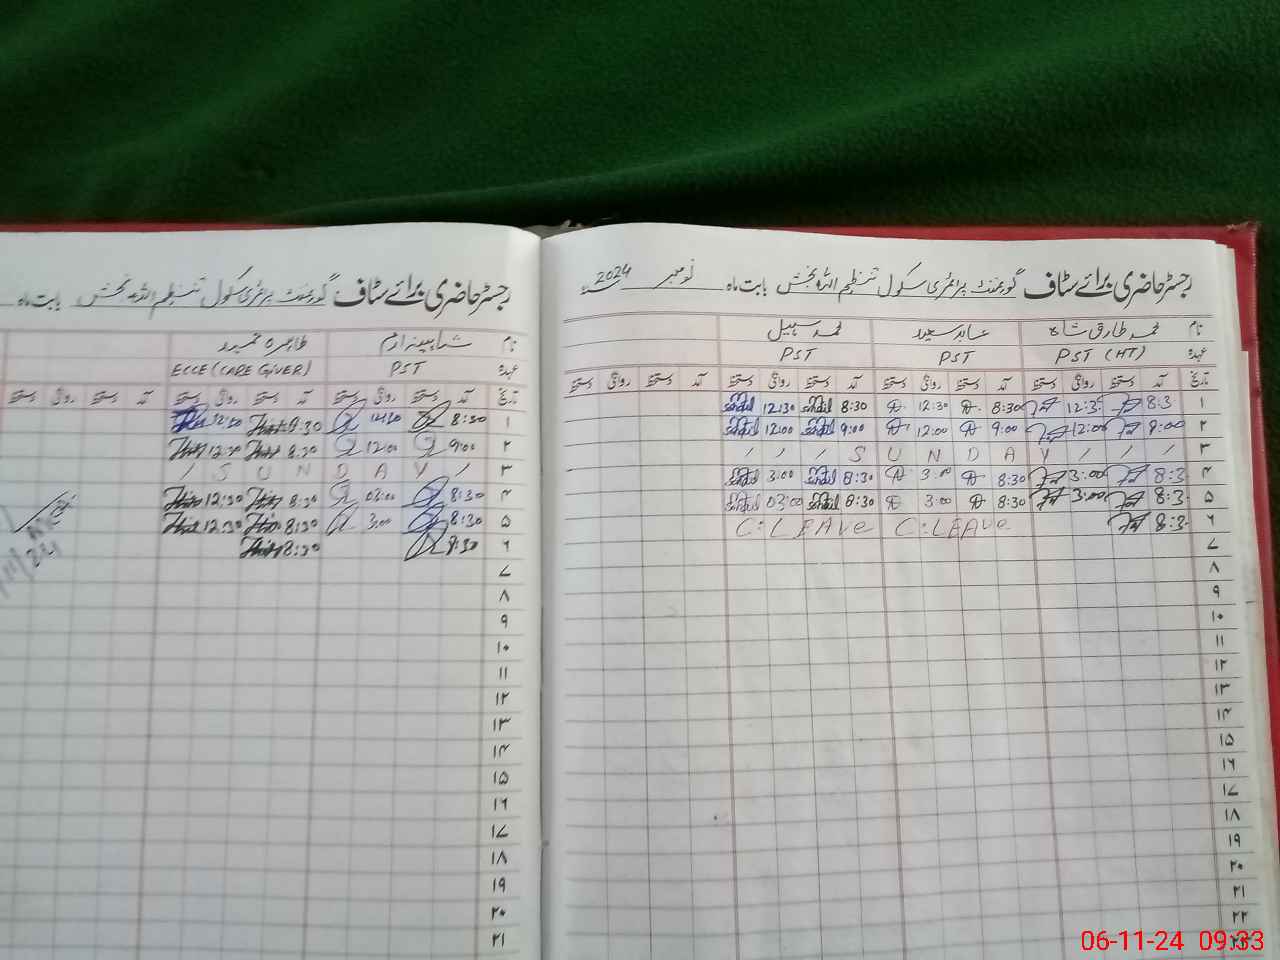 رجسٹر حاضری برائے سٹاف گورنمنٹ پرائمری سکول تنظیم اللہ بخش بابت ماہ نومبر 2024
نام محمد طارق شاہ عابد سعید محمد سہیل
عہدہ PST (HT) PST PST
تاریخ آمد دستخط روانگی دستخط آمد دستخط روانگی دستخط آمد دستخط روانگی دستخط آمد دستخط روانگی دستخط
۱ 8:3 12:3 8:30 12:30 8:30 12:30
۲ 9:00 12:00 9:00 12:00 9:00 12:00
۳ S U N D A Y
۴ 8:3 3:00 8:30 3:00 8:30 3:00
۵ 8:3 3:00 8:30 3:00 8:30 03:00
۶ 8:3 C:LEAVe C:LEAVe
۷
۸
۹
۱۰
۱۱
۱۲
۱۳
۱۴
۱۵
۱۶
۱۷
۱۸
۱۹
۲۰
۲۱
۲۲
۲۳
رجسٹر حاضری برائے سٹاف گورنمنٹ پرائمری سکول تنظیم اللہ بخش بابت ماہ
نام شاہینہ ارم طاہرہ حمید
عہدہ PST ECCE (CARE GIVER)
تاریخ آمد دستخط روانگی دستخط آمد دستخط روانگی دستخط آمد دستخط روانگی دستخط
۱ 8:30 12:30 8:30 12:30
۲ 9:00 12:00 8:30 12:30
۳ S U N D A Y
۴ 8:30 03:00 8:30 12:30
۵ 8:30 3:00 8:30 12:30
۶ 8:30 8:30
۷
۸
۹
۱۰
۱۱
۱۲
۱۳
۱۴
۱۵
۱۶
۱۷
۱۸
۱۹
۲۰
۲۱
06-11-24 09:33